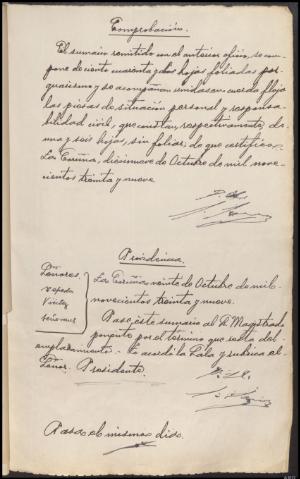 Comprobación.
El sumario remitido con el anterior oficio, se com-
pone de ciento cuarenta y dos hojas foliadas por
guarismo y se acompañan unidas en cuerda floja
las piezas de situación personal y responsa-
bilidad civil, que constan, respectivamente, de
una y seis hojas, sin foliar; de que certifico.-
La Coruña, diecinueve de Octubre de mil nove-
cientos treinta y nueve.
Providencia.
Señores
La Coruña veinte de Octubre de mil
novecientos treinta y nueve.
Pase este sumario al Sr. Magistrado
ponente por el término que resta del
emplazamiento.- Lo acordó la Sala y rubrica el
Señor Presidente.
Pasa el mismo día.